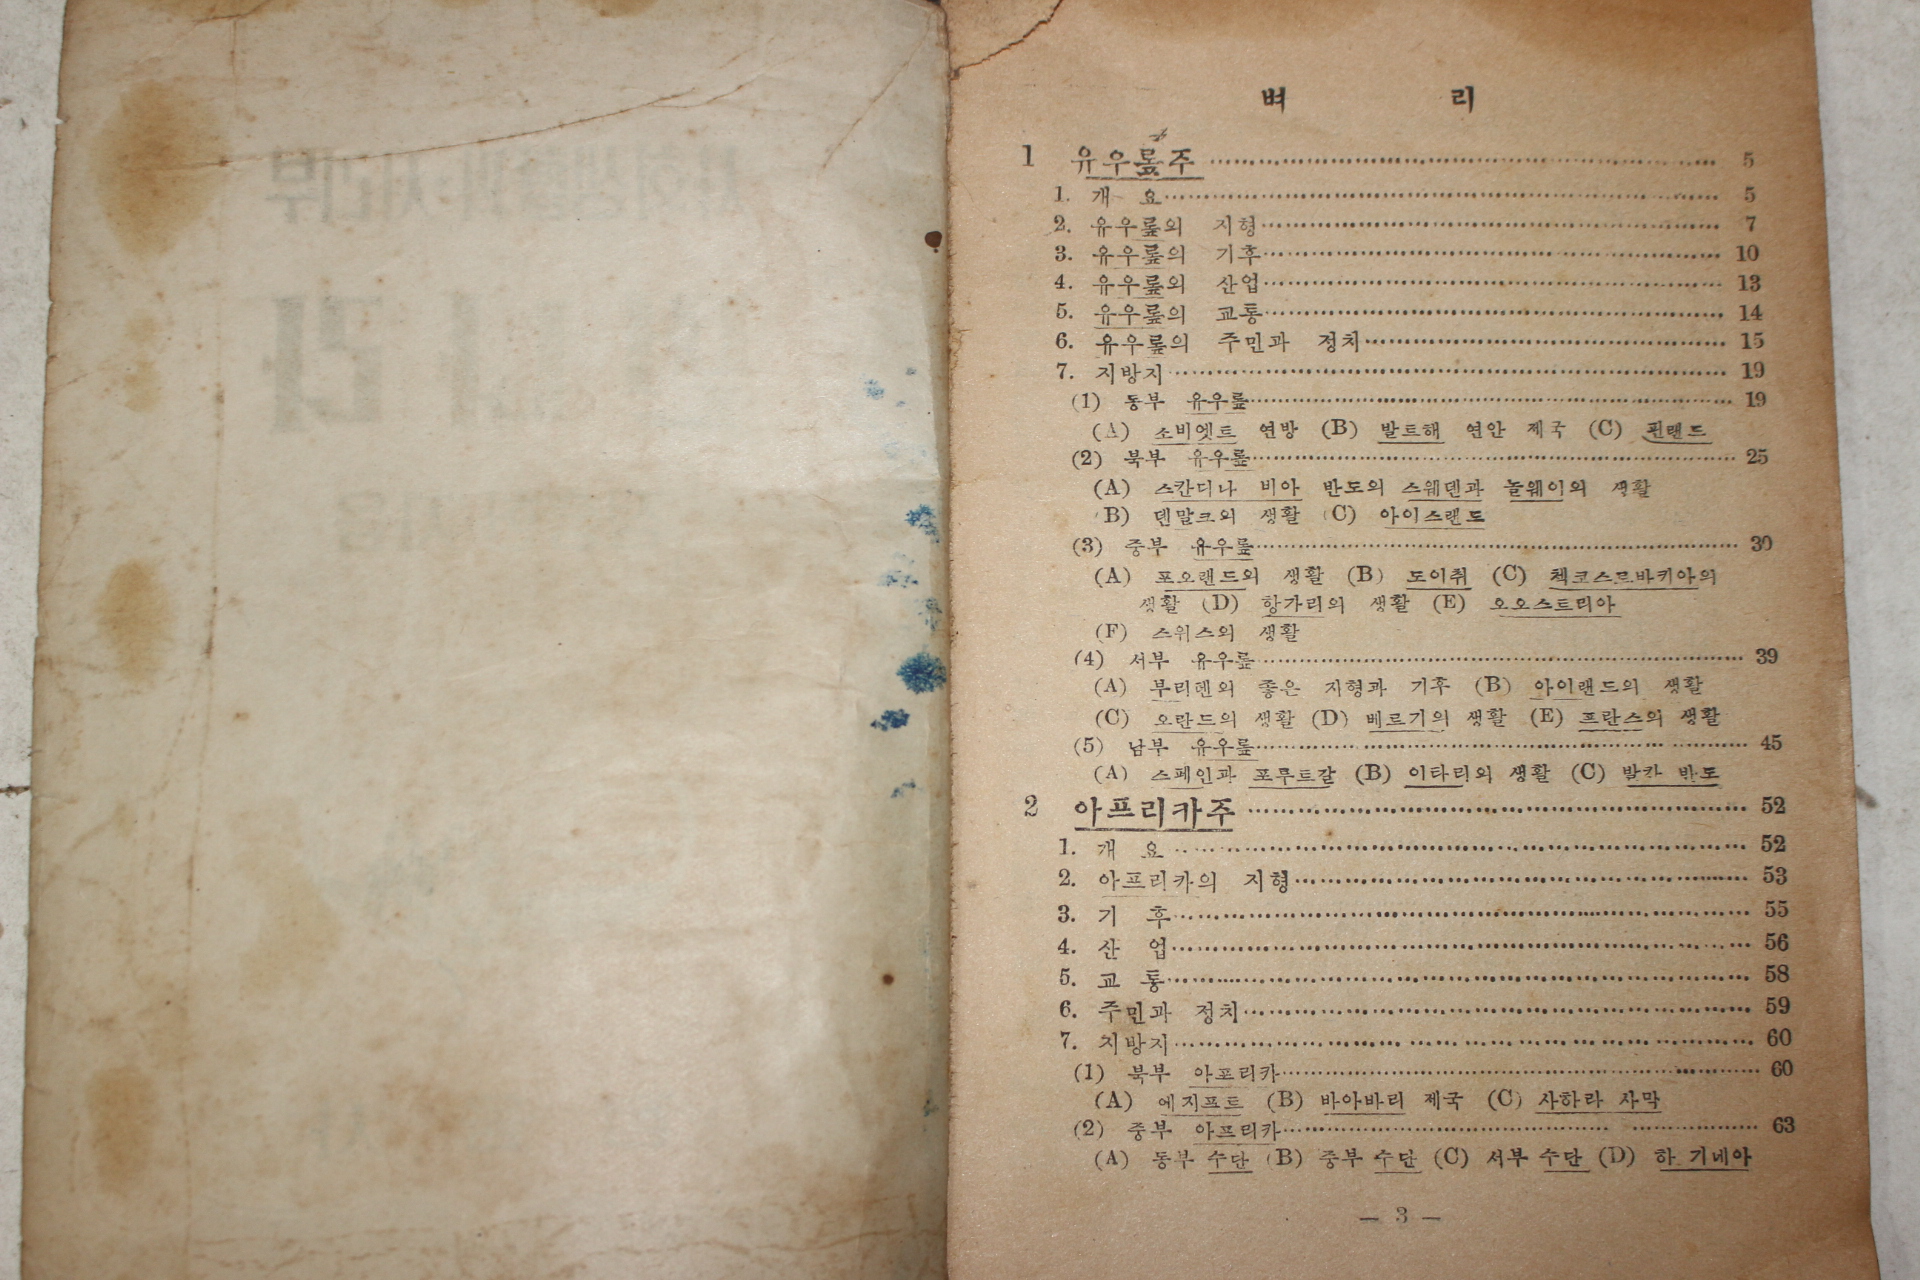 벼 리
1 유우롶주 5
1. 개 요 5
2. 유우롶의 지형 7
3. 유우롶의 기후 10
4. 유우롶의 산업 13
5. 유우롶의 교통 14
6. 유우롶의 주민과 정치 15
7. 지방지 19
(1) 동부 유우롶 19
(A) 소비엣트 연방 (B) 발트해 연안 제국 (C) 핀랜드
(2) 북부 유우롶 25
(A) 스칸디나 비아 반도의 스웨덴과 놀웨이의 생활
(B) 덴말크의 생활 (C) 아이스랜드
(3) 중부 유우롶 30
(A) 포오랜드의 생활 (B) 도이취 (C) 첵코스로바키아의
생활 (D) 항가리의 생활 (E) 오오스트리아
(F) 스위스의 생활
(4) 서부 유우롶 39
(A) 부리텐의 좋은 지형과 기후 (B) 아이랜드의 생활
(C) 오란드의 생활 (D) 베르기의 생활 (E) 프란스의 생활
(5) 남부 유우롶 45
(A) 스페인과 포루트갈 (B) 이타리의 생활 (C) 발칸 반도
2 아프리카주 52
1. 개 요 52
2. 아프리카의 지형 53
3. 기 후 55
4. 산 업 56
5. 교 통 58
6. 주민과 정치 59
7. 지방지 60
(1) 북부 아프리카 60
(A) 에지프트 (B) 바아바리 제국 (C) 사하라 사막
(2) 중부 아프리카 63
(A) 동부 수단 (B) 중부 수단 (C) 서부 수단 (D) 하 기네아
— 3 —